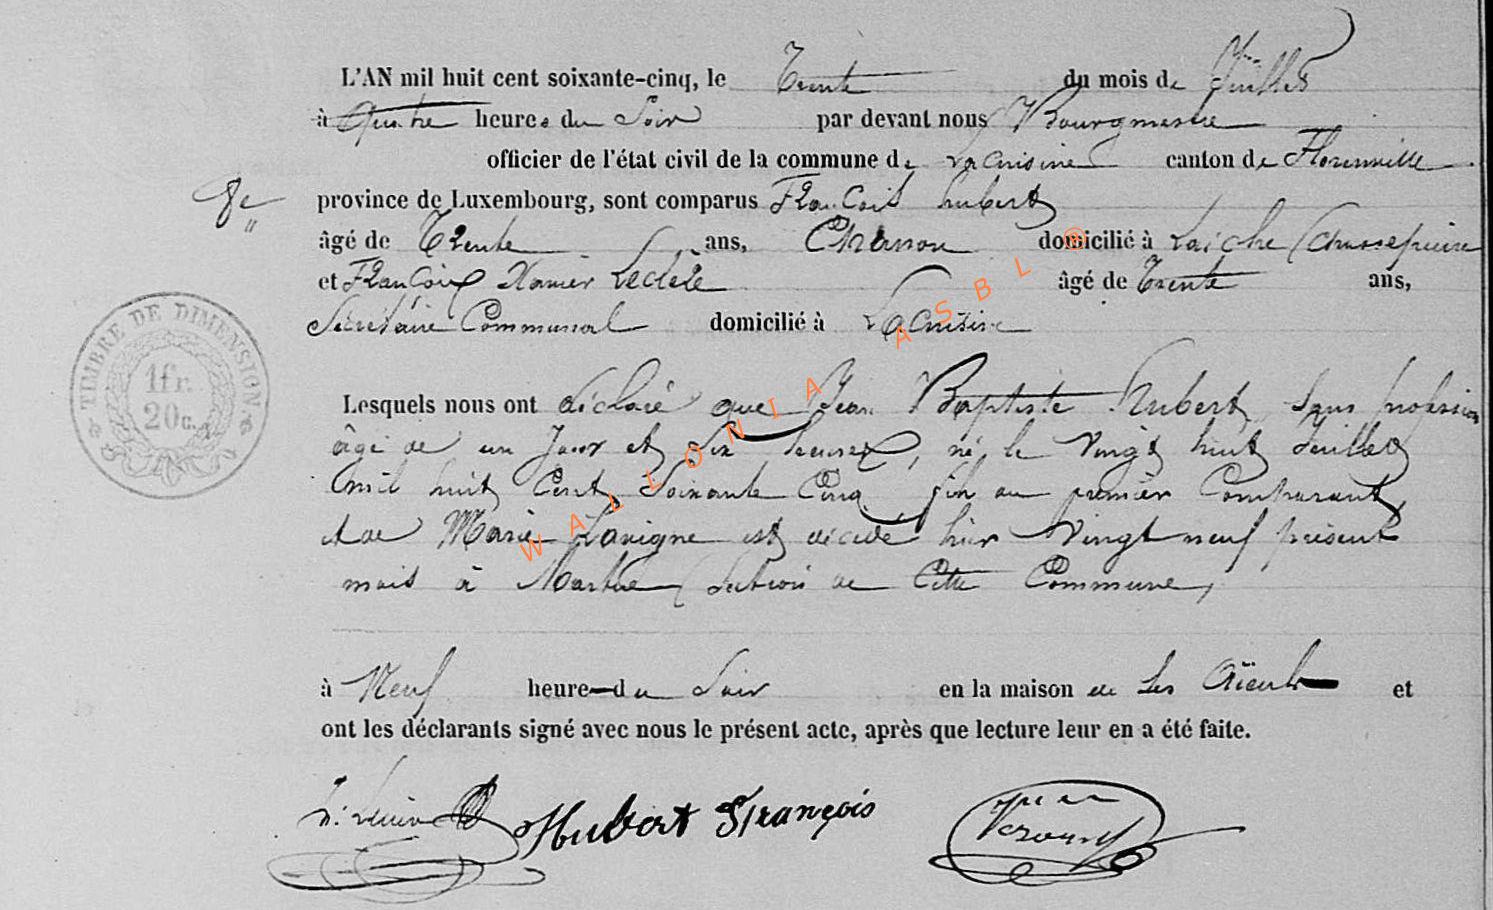 L'AN mil huit cent soixante-cinq, le Trente du mois de Juillet
à Quatre heures du Soir par devant nous Bourgmestre
officier de l'état civil de la commune de Lacuisine canton de Florenville
8e
province de Luxembourg, sont comparus François hubert
âgé de Trente ans, domicilié à Laiche (Chassepierre
et François Xavier Leclère âgé de Trente ans,
Secrétaire Communal domicilié à Lacuisine
TIMBRE DE DIMENSION
1 fr.
20 c.
Lesquels nous ont déclaré que Jean Baptiste Hubert, Sans profession
âgé de un Jour et Six heures, né le Vingt huit Juillet
mil huit Cent Soixante Cinq fils au premier Comparant,
et de Marie Lavigne est décédé hier Vingt neuf présent
mois à Martué (Section de Cette Commune,
à Neuf heure du Soir en la maison de Ses Aïeuls et
ont les déclarants signé avec nous le présent acte, après que lecture leur en a été faite.
Hubert François
WALLONIA ASBL ®